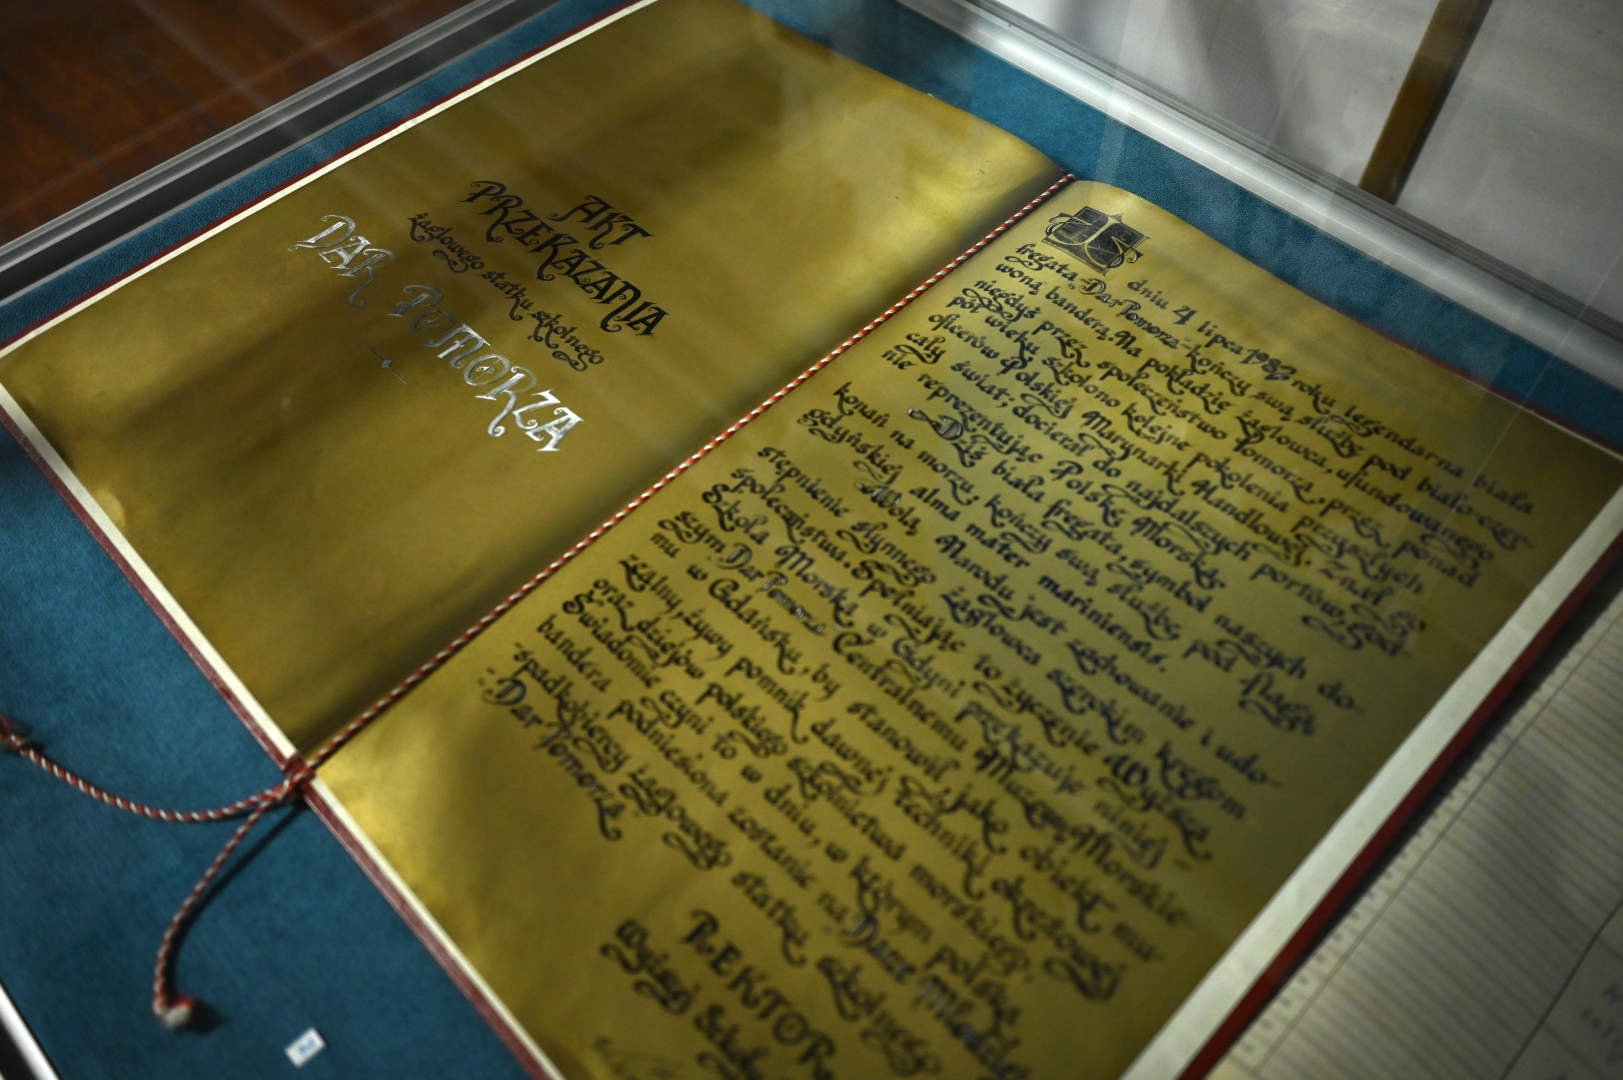 AKT
PRZEKAZANIA
żaglowego statku szkolnego
DAR POMORZA
dniu 4 lipca 1982 roku legendarna biała
fregata „Dar Pomorza” kończy swą służbę pod biało-czer-
woną banderą. Na pokładzie żaglowca, ufundowanego
niegdyś przez społeczeństwo Pomorza, przez ponad
pół wieku szkolono kolejne pokolenia przyszłych
oficerów Polskiej Marynarki Handlowej. Znał go
cały świat; docierał do najdalszych portów, god-
nie reprezentując Polskę Morską.
Dziś biała fregata, symbol naszych do-
konań na morzu, kończy swą służbę pod flagą
gdyńskiej alma mater mariniensis.
Wolą Narodu jest zachowanie i udo-
stępnienie słynnego żaglowca szerokim kręgom
społeczeństwa. Spełniając to życzenie Wyższa
Szkoła Morska w Gdyni przekazuje niniej-
szym „Dar Pomorza” Centralnemu Muzeum Morskie-
mu w Gdańsku, by stanowił, jako obiekt mu-
zealny, żywy pomnik dawnej techniki okrętowej
oraz dziejów polskiego szkolnictwa morskiego.
Świadomie czyni to w dniu, w którym polska
bandera podniesiona zostanie na „Darze Młodzieży”
spadkobiercy żaglowego statku szkolnego
„Dar Pomorza”
REKTOR
Wyższej Szkoły